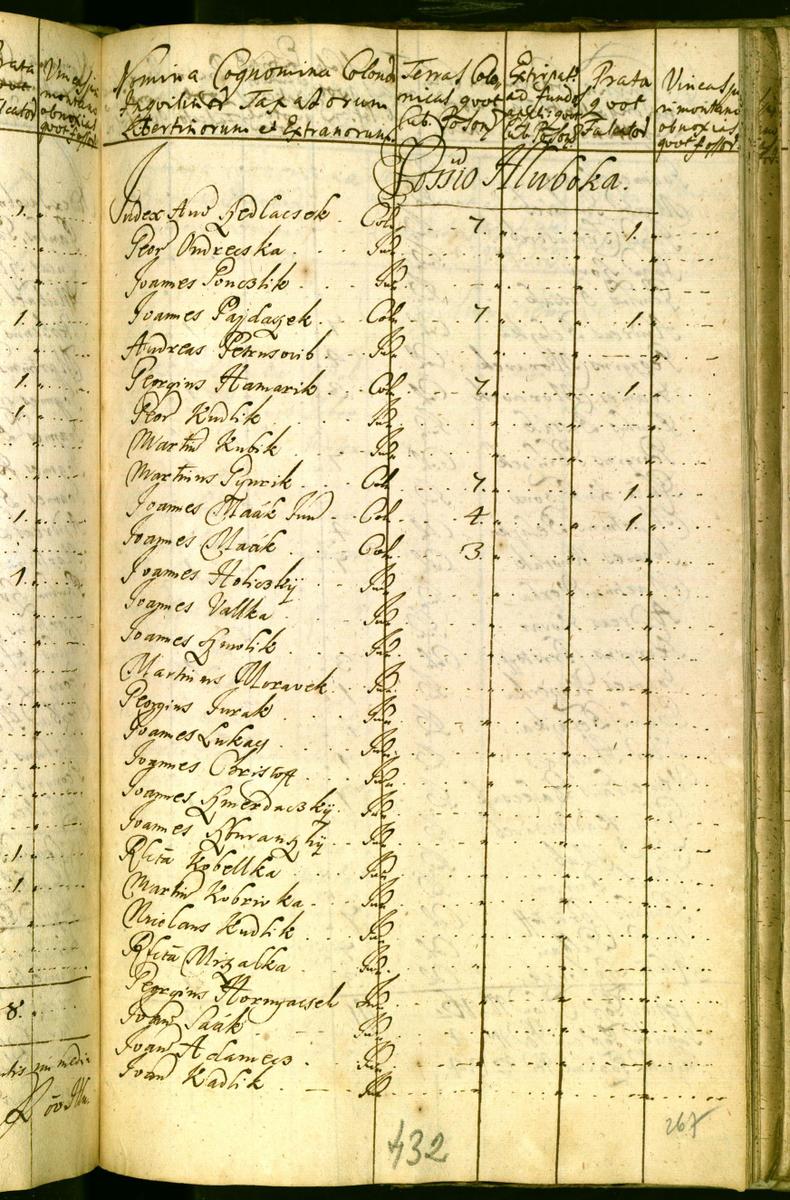 Nomina Cognomina Colonor
Inquilinor Taxatorum
Libertinorum et Extranorum
Terras Colo
nicas quot
Cub. Poson
Extirpat
ad fundos
quot
Cub. Poson
Prata
quot
Falcator
Vineas
montano
obnoxias
quot fossor
Possio Hluboka.
Judex And Sedlacsek Col. 7. 1.
Geor Ondrecska Inq
Joannes Ponczlik Inq
Joannes Pajdaszek Col. 7. 1.
Andreas Inq
Georgius Hamarik Col. 7. 1
Geor Kudlik Inq
Martin Kubik Inq
Martinus Col. 7. 1.
Joannes Maák Jun Col. 4. 1.
Joannes Maák Col. 3.
Joannes Holiczkÿ Inq
Joannes Valka Inq
Joannes Smolik Inq
Martinus Moravek Inq
Georgius Jurak Inq
Joannes Lukacs Inq
Joannes Christoff Inq
Joannes Smerdaczkÿ Inq
Joannes Inq
Rlcta Kobellka Inq
Martin Kobrivka Inq
Kudlik Inq
Rlcta Mizalka Inq
Georgius Hornyacsek Inq
Joan Saák Inq
Joan Adamecs Inq
Joan Kadlik
432
267
1.
1.
1.
1.
1.
1.
1.
1.
8.